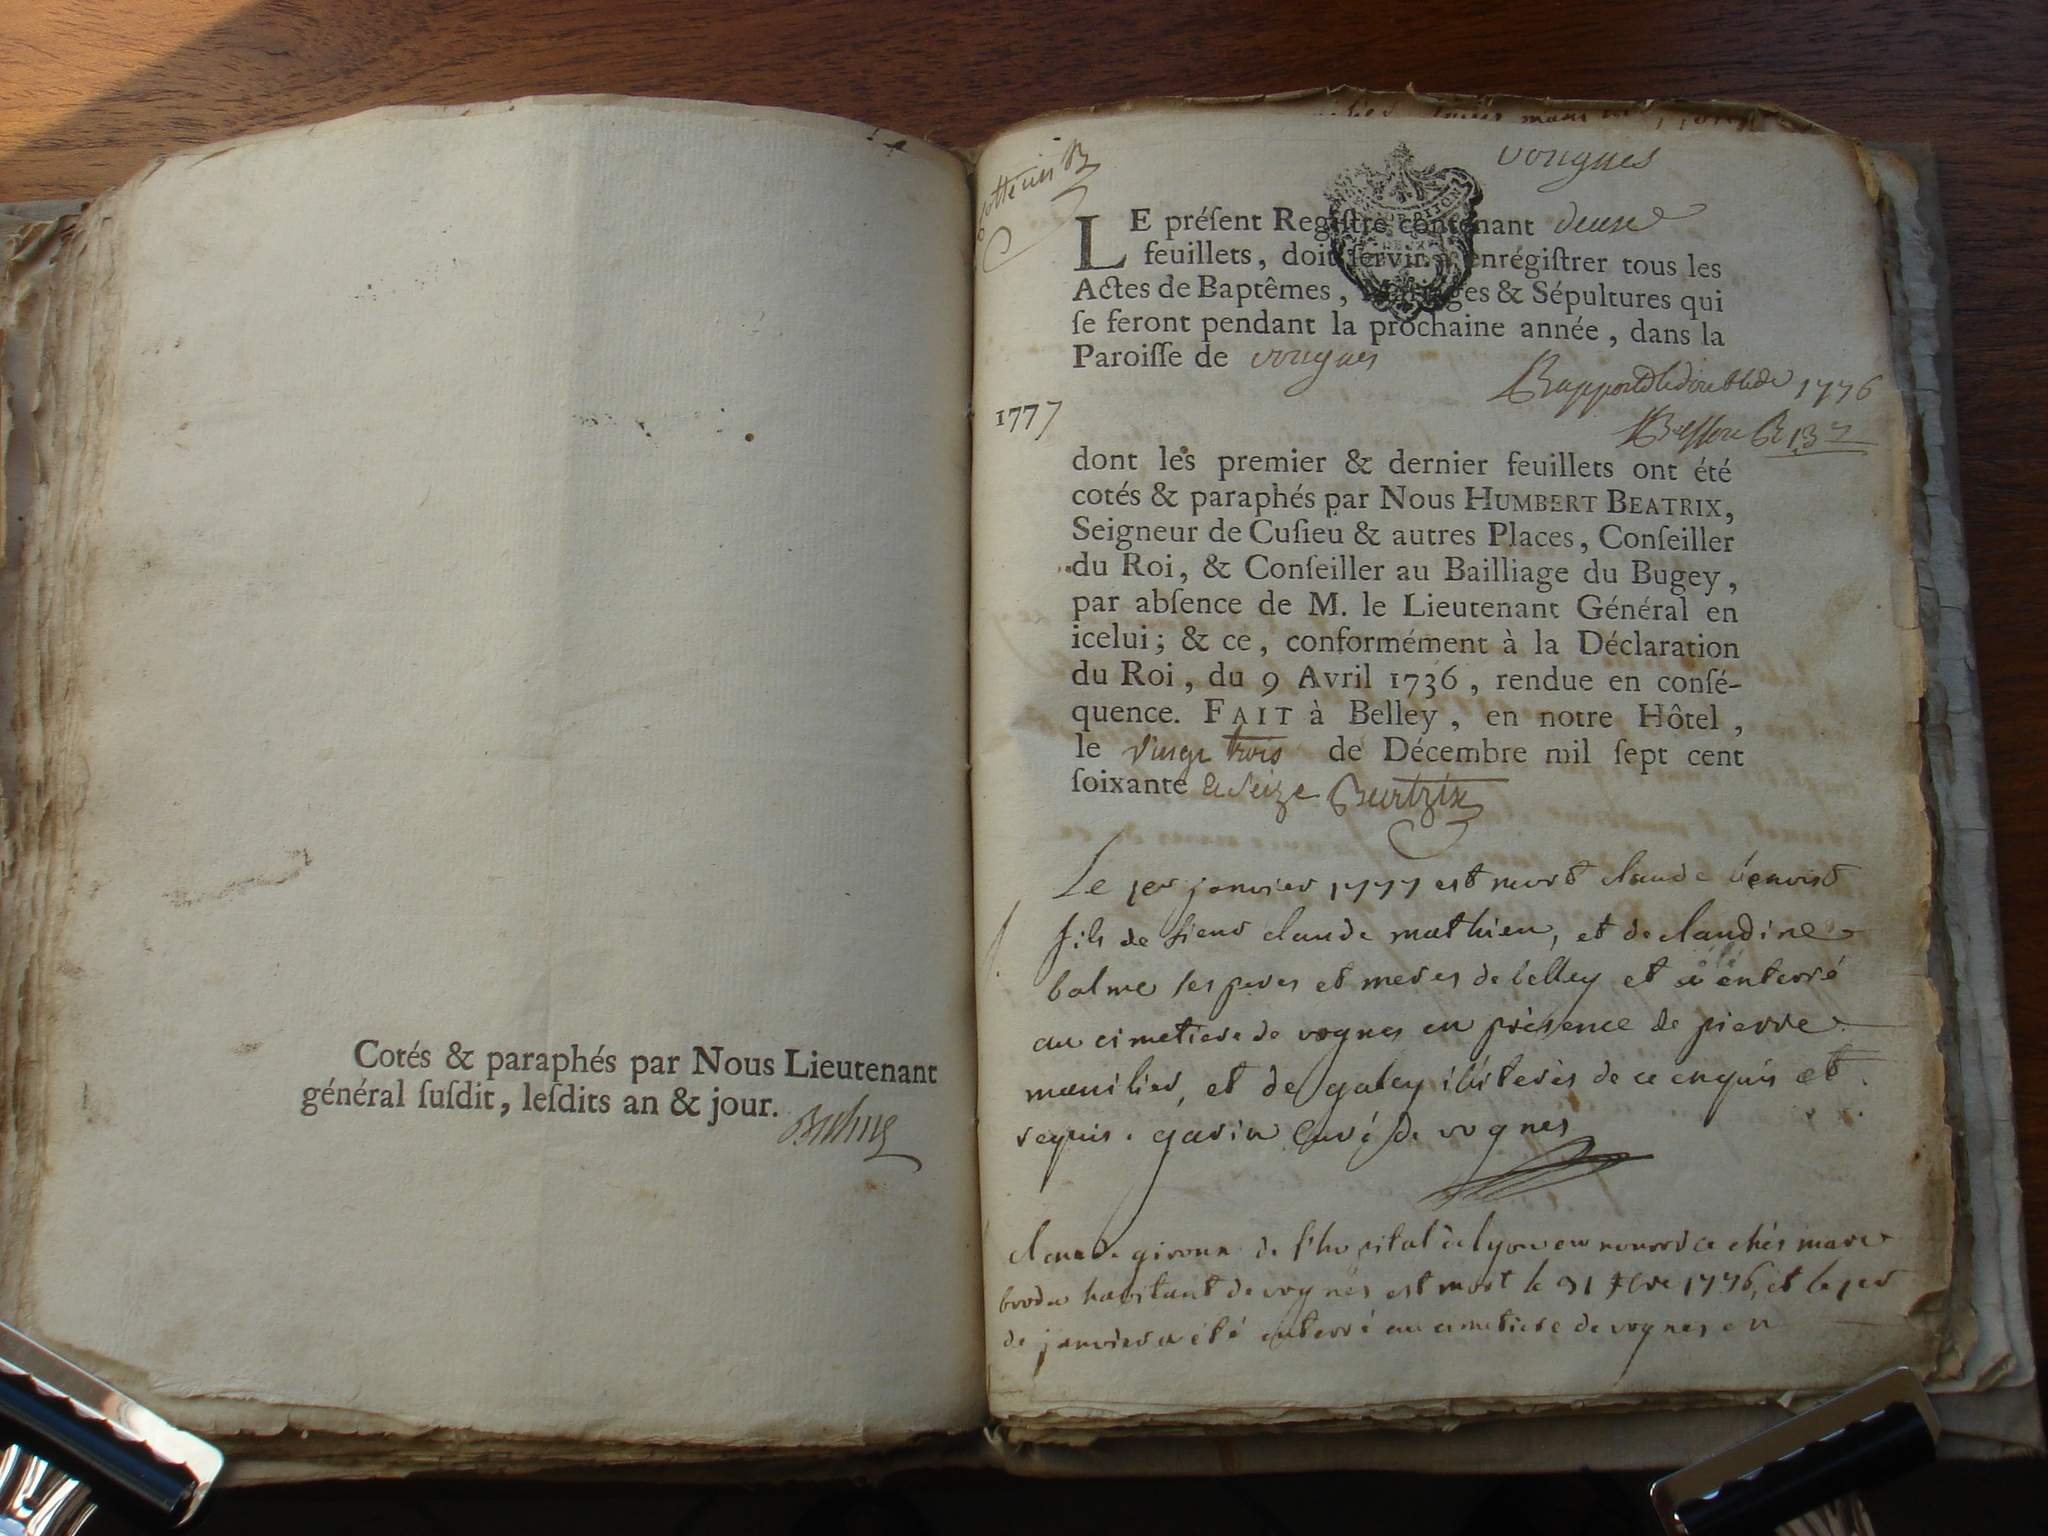 Cotés & paraphés par Nous Lieutenant
général ſuſdit, leſdits an & jour.
vougnes
LE préſent Regiſtre contenant deux
feuillets, doit ſervir à enrégiſtrer tous les
Actes de Baptêmes, Mariages & Sépultures qui
ſe feront pendant la prochaine année, dans la
Paroiſſe de vougnes
Rapporté le double de 1776
1777
dont les premier & dernier feuillets ont été
cotés & paraphés par Nous HUMBERT BEATRIX,
Seigneur de Cuſieu & autres Places, Conſeiller
du Roi, & Conſeiller au Bailliage du Bugey,
par abſence de M. le Lieutenant Général en
icelui; & ce, conformément à la Déclaration
du Roi, du 9 Avril 1736, rendue en conſé-
quence. FAIT à Belley, en notre Hôtel,
le vingt trois de Décembre mil ſept cent
ſoixante & seize Beatrix
Le 1er janvier 1777 est mort claude benoist
fils de sieur claude mathieu, et de claudine
balme ses peres et meres de belley et a été enterré
au cimetiere de vognes en présence de pierre
manilier, et de galey illiterés de ce enquis et
requis. garin Curé de vognes
claude giroux de l'hopital de lyon en nourrice chés marc
brodu havitant de vognes est mort le 31 Xbre 1776, et le 1er
de janvier a été enterré au cimetiere de vognes en